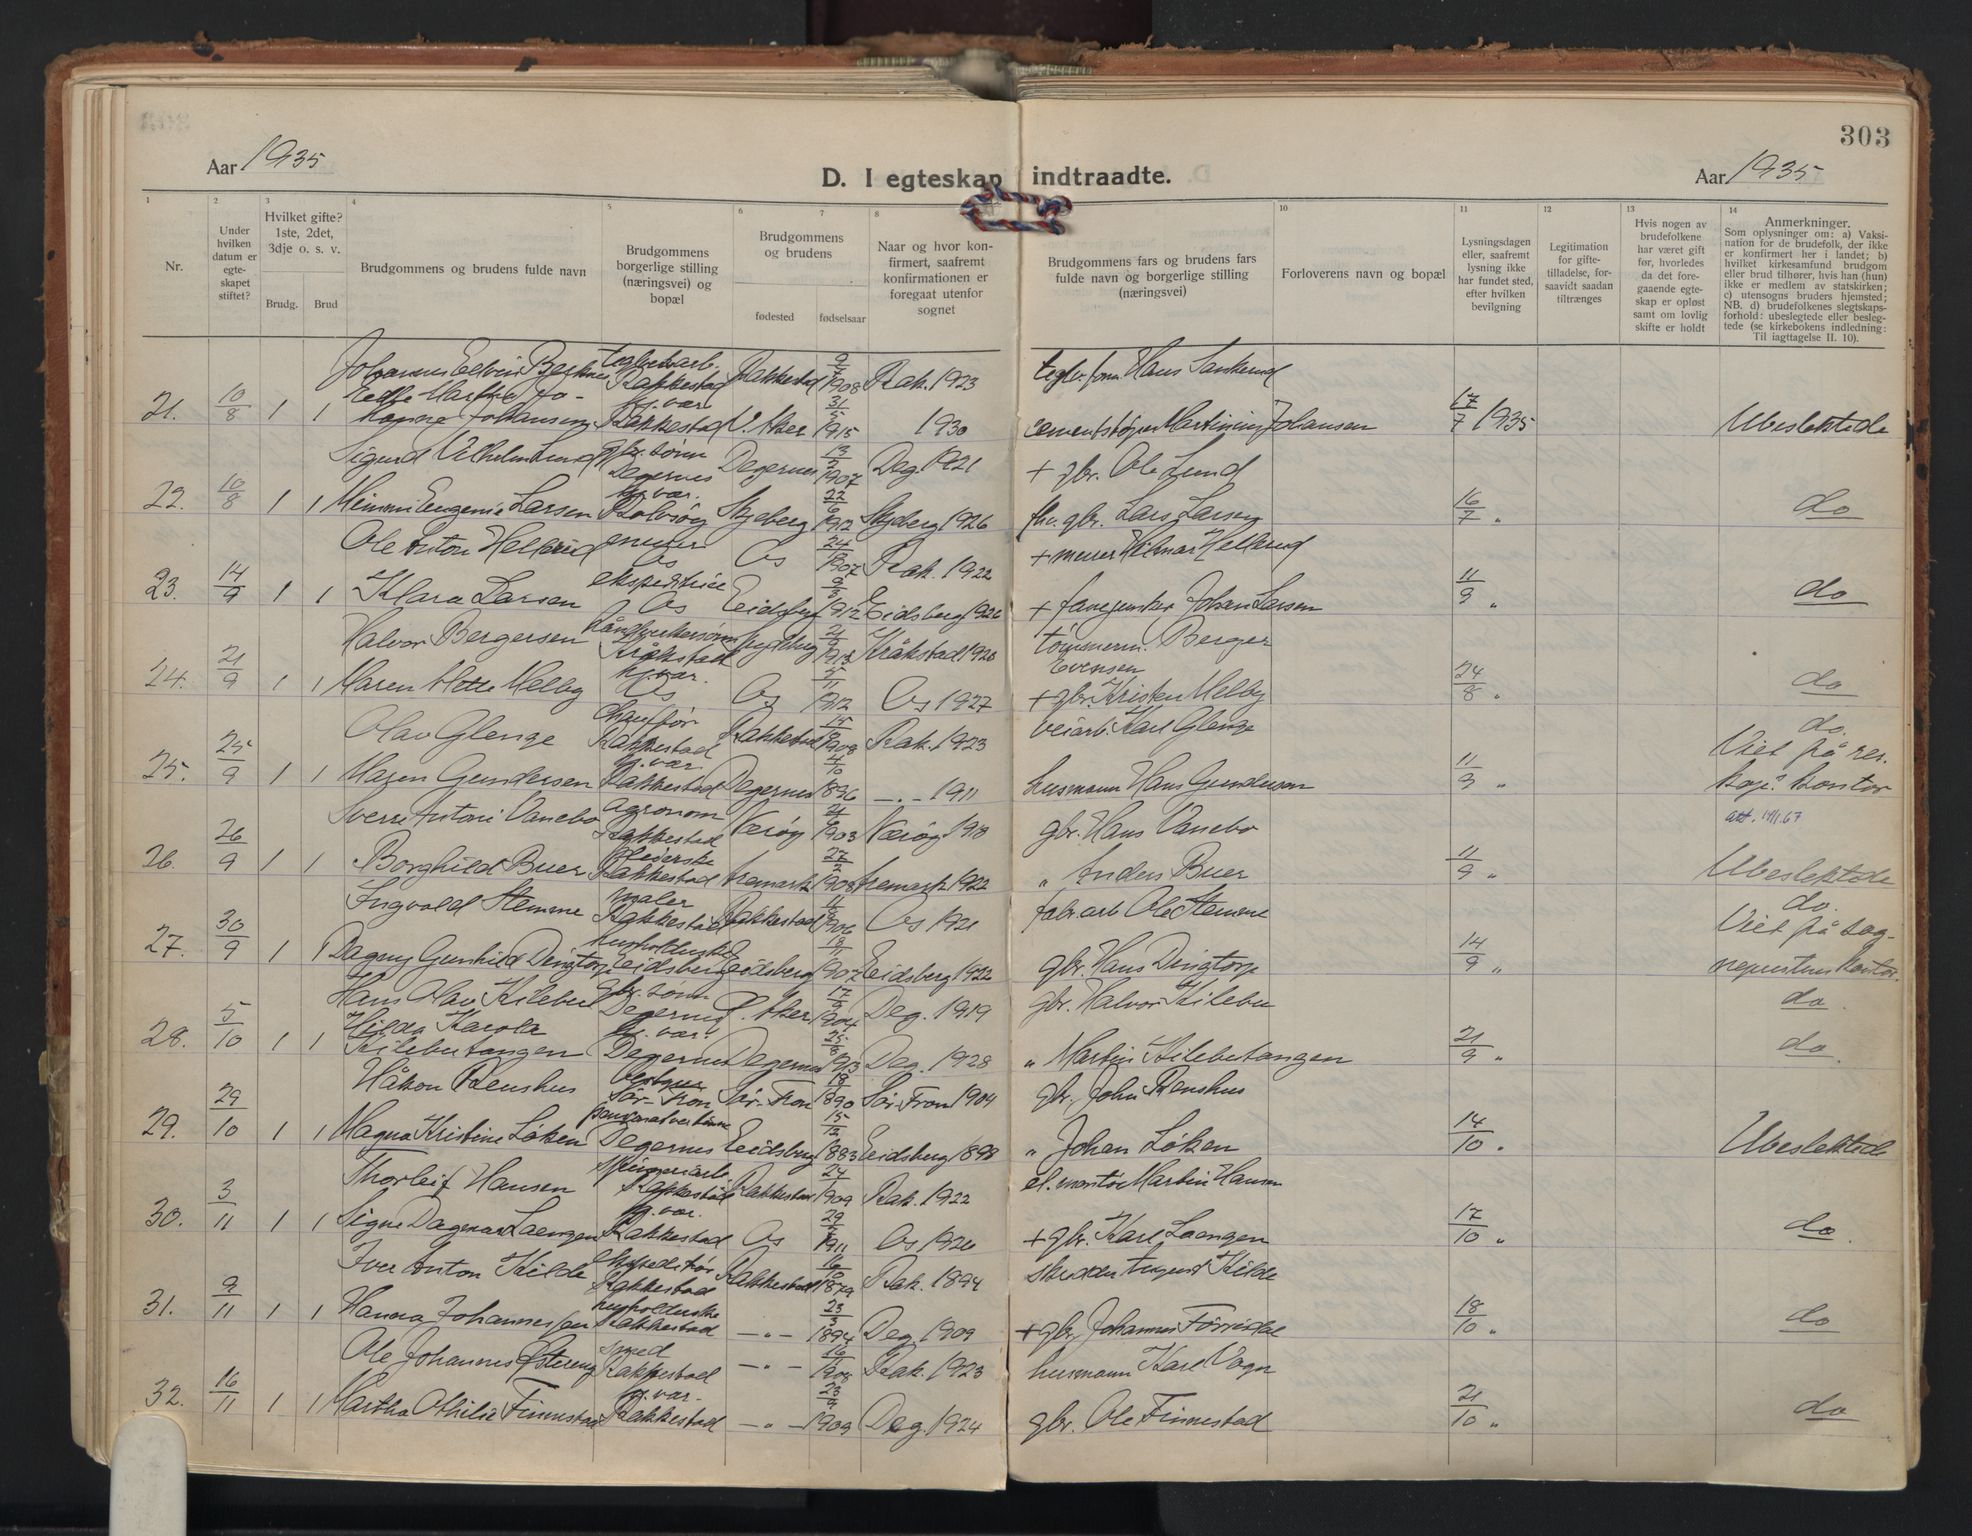 303
Aar 1935
D. I egteskap indtraadte.
Aar 1935
1 2 3 4 5 6 7 8 10 11 12 13 14
Nr.
Under hvilken datum er egteskapet stiftet?
Hvilket gifte? 1ste, 2det, 3dje o. s. v.
Brudg. Brud
Brudgommens og brudens fulde navn
Brudgommens borgerlige stilling (næringsvei) og bopæl
Brudgommens og brudens
fødested fødselsaar
Naar og hvor konfirmert, saafremt konfirmationen er foregaat utenfor sognet
Brudgommens fars og brudens fars fulde navn og borgerlige stilling (næringsvei)
Forloverens navn og bopæl
Lysningsdagen eller, saafremt lysning ikke har fundet sted, efter hvilken bevilgning
Legitimation for giftetilladelse, forsaavidt saadan tiltrænges
Hvis nogen av brudefolkene har været gift før, hvorledes da det foregaaende egteskap er opløst samt om lovlig skifte er holdt
Anmerkninger.
Som oplysninger om: a) Vaksination for de brudefolk, der ikke er konfirmert her i landet; b) hvilket kirkesamfund brudgom eller brud tilhører, hvis han (hun) ikke er medlem av statskirken; c) utensogns bruders hjemsted; NB. d) brudefolkenes slegtskapsforhold: ubeslegtede eller beslegtede (se kirkebokens indledning: Til iagttagelse II. 10).
Rakkestad Rakkestad 1908 Rak. 1923
21. 10/8 1 1 Johansen Rakkestad V. Aker 31/5 1915 1930 Johansen 17/7 1935 Ubeslektede
Sigurd Vilhelm Lund gbr. sønn Degernes Degernes 1907 Deg. 1921 + gbr. Ole Lund
22. 10/8 1 1 Mimmi Eugenie Larsen hj. vær. Rolvsøy Skjeberg 22/6 1912 Skjeberg 1926 fhv. gbr. Lars Larsen 16/7 " do
Ole Anton Hellerud murer Os Os 1907 Rak. 1922 + murer Hilmar Hellerud
23. 14/9 1 1 Klara Larsen ekspeditrise Os Eidsberg 1912 Eidsberg 1926 + Johan Larsen 11/9 " do
Halvor Bergersen Kråkstad 1913 Kråkstad 1928 tømmerm. Berger Evensen
24. 21/9 1 1 Maren Mette Melby hj. vær. Os Os 1912 Os 1927 + gbr. Kristen Melby 24/8 " do
Olav Glenge chauffør Rakkestad Rakkestad 1908 Rak. 1923 veiarb. Karl Glenge do.
25. 25/9 1 1 Maren Gundersen hj. vær. Rakkestad Degernes 4/10 1896 — " — 1911 husmann Hans Gundersen 11/9 " Viet på res. kap.s kontor
Sverre Antoni Vanebo agronom Rakkestad Nærøy 1903 Nærøy 1918 gbr. Hans Vanebo att. 14/11.67
26. 26/9 1 1 Borghild Buer Pleierske Rakkestad Aremark 27/2 1908 Aremark 1922 " Anders Buer 11/9 " Ubeslektede
Ingvald Stemme maler Rakkestad Rakkestad 1906 Os 1921 fabr. arb. Ole Stemme do.
27. 30/9 1 1 Dagny Gunhild Dingtorp husholderske Eidsberg Eidsberg 1907 Eidsberg 1922 gbr. Hans Dingtorp 14/9 " Viet på sogneprestens kontor.
Hans Olav Kilebu gbr. sønn Degernes Aker 1904 Deg. 1919 gbr. Halvor Kilebu do.
28. 5/10 1 1 Hilda Karola Kilebutangen hj. vær. Degernes Degernes 1913 Deg. 1928 " Martin Kilebutangen 21/9 " do
Håkon Renshus Sør-Fron Sør-Fron 1890 Sør-Fron 1904 gbr. John Renshus
29. 29/10 1 1 Magna Kristine Løken pensjonatvertinne Degernes Eidsberg 1883 Eidsberg 1898 " Johan Løken 14/10 " Ubeslektede
Thorleif Hansen spinneriarb. Rakkestad Rakkestad 1909 Rak. 1922 el. montør Martin Hansen
30. 3/11 1 1 Signe Dagmar Laengen hj. vær. Rakkestad Os 1911 Os 1926 + gbr. Karl Laengen 17/10 " do
Iver Anton Kilde ekspeditør Rakkestad Rakkestad 1879 Rak. 1894 skredder August Kilde
31. 9/11 1 1 Hanna Johannessen husholderske Rakkestad — " — 23/3 1894 Deg. 1909 + gbr. Johannes 18/10 " do
Ole Johannes Østereng smed Rakkestad — " — 1908 Rak. 1923 husmann Karl Vagn
32. 16/11 1 1 Martha Othilie Finnestad hj. vær. Rakkestad — " — 1909 Deg. 1924 gbr. Ole Finnestad 21/10 " do